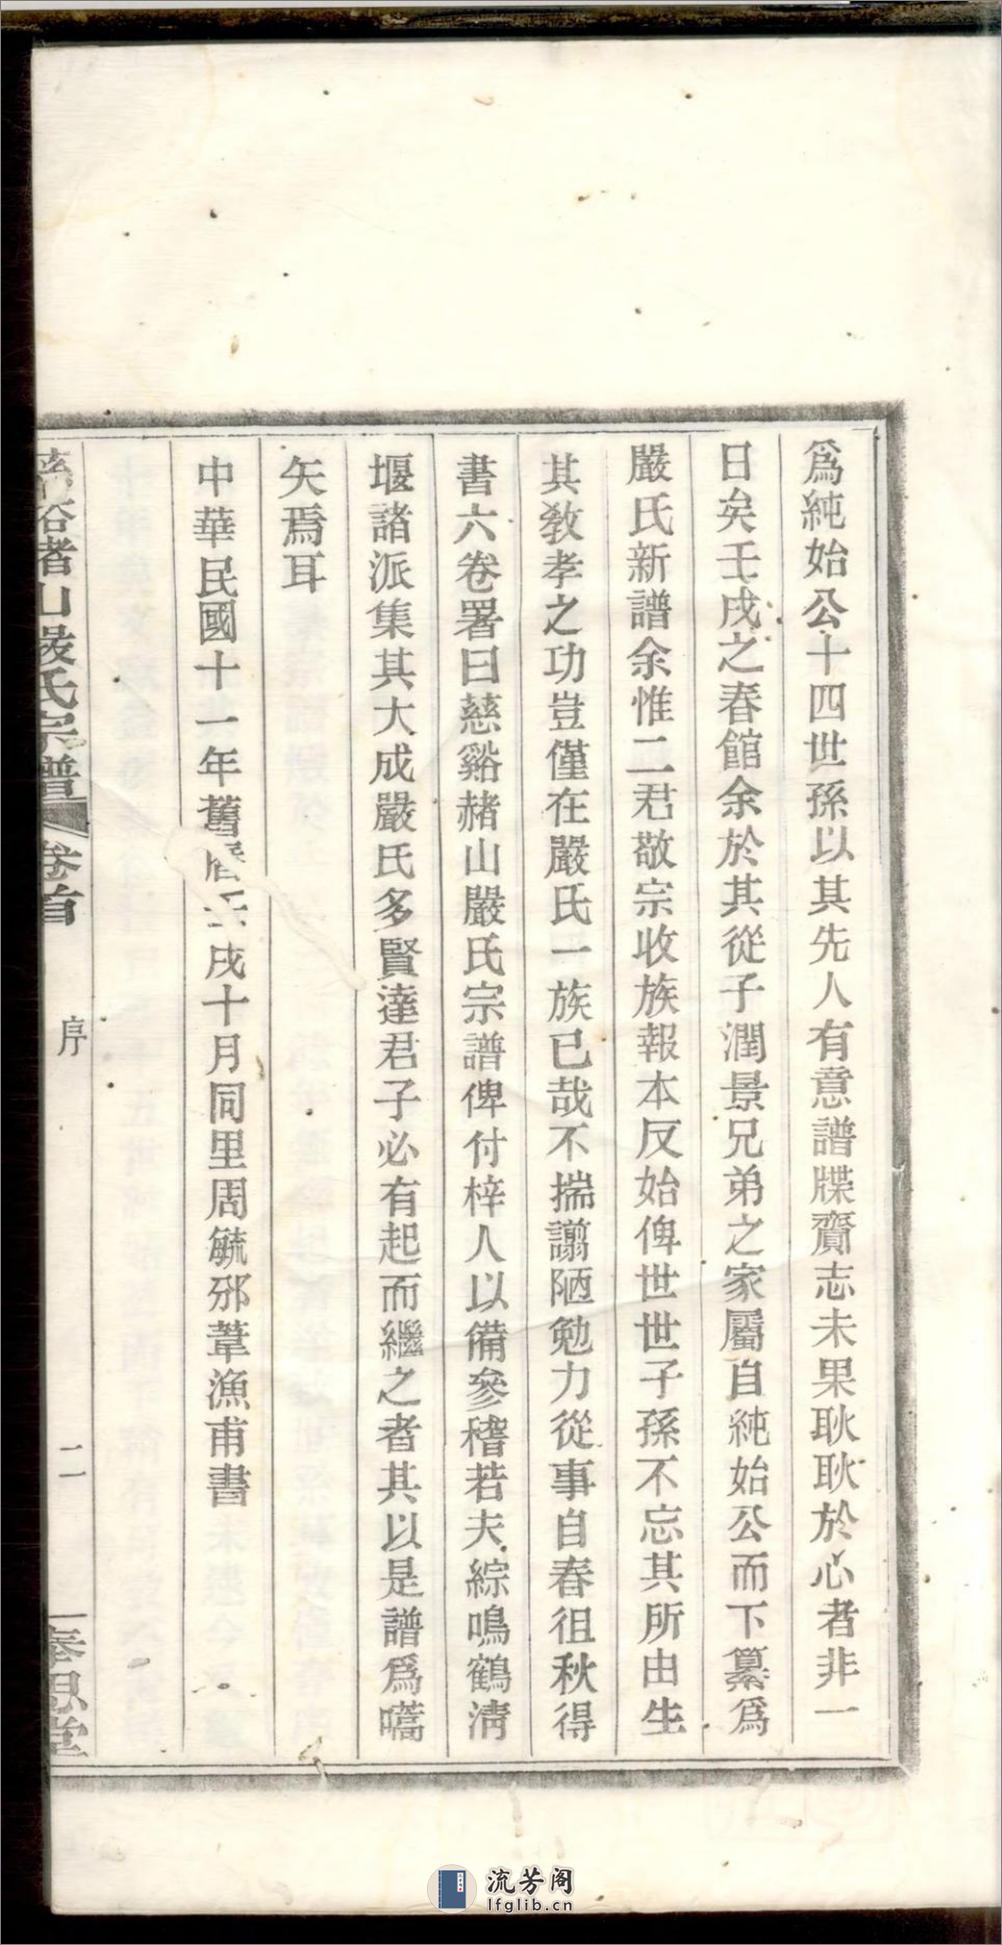 爲純始公十四世孫以其先人有意譜牒齎志未果耿耿於心者非一
日矣壬戌之春館余於其從子潤景兄弟之家屬自純始公而下纂爲
嚴氏新譜余惟二君敬宗收族報本反始俾世世子孫不忘其所由生
其敎孝之功豈僅在嚴氏一族已哉不揣譾陋勉力從事自春徂秋得
書六卷署曰慈谿赭山嚴氏宗譜俾付梓人以備參稽若夫綜鳴鶴淸
堰諸派集其大成嚴氏多賢達君子必有起而繼之者其以是譜爲嚆
矢焉耳
中華民國十一年舊曆壬戌十月同里周毓邠葦漁甫書
慈谿赭山嚴氏宗譜 卷首 序 二 奉思堂
流芳阁
lfglib.cn